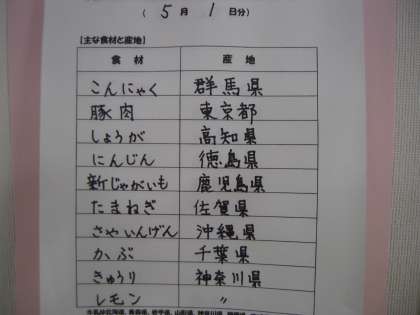 ( 5 月 1 日分)
【主な食材と産地】
食 材 産 地
こんにゃく 群馬県
豚肉 東京都
しょうが 高知県
にんじん 徳島県
新じゃがいも 鹿児島県
たまねぎ 佐賀県
さやいんげん 沖縄県
かぶ 千葉県
きゅうり 神奈川県
レモン 〃